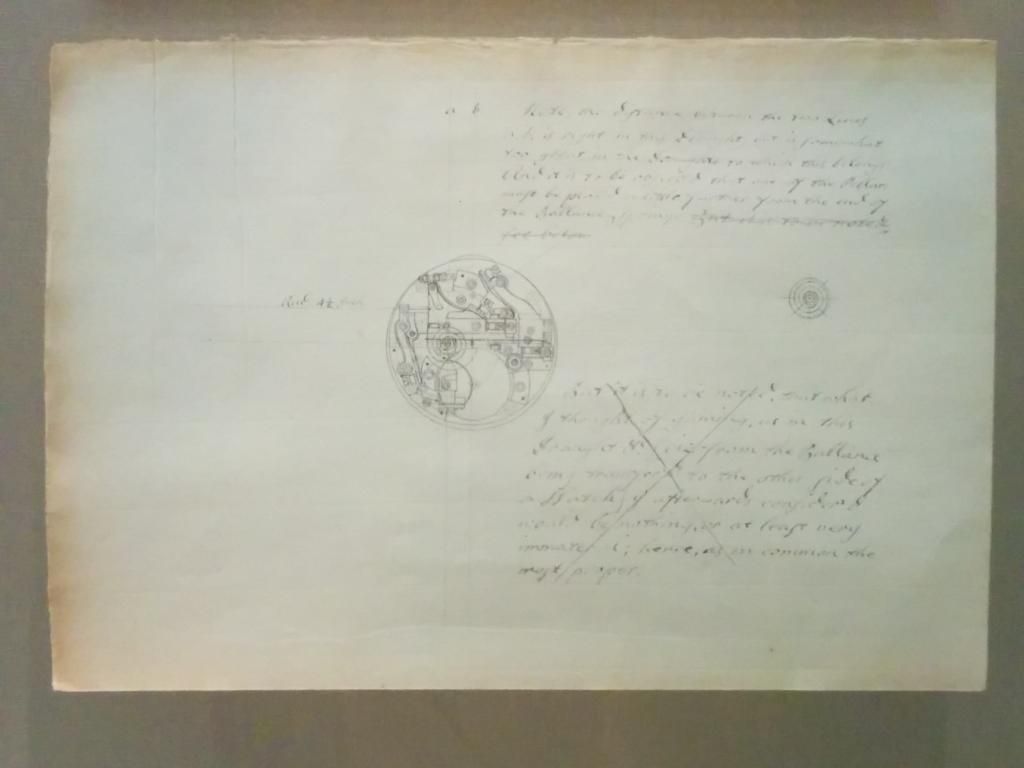 a b Note, the distance between the two Lines
a b, is right in this Draught but is somewhat
too great in the Draught to which this belongs
And it is to be noticed that one of the Pillars
must be placed a little further from the end of
the Ballance Spring. But
see below
Rad
But it is to be noted, that what
I thought of gaining, as in this
Draught from the Ballance
being to the other side of
a Watch, I afterwards considered
would be nothing, or at least very
immaterial; hence, as in common the
most proper.